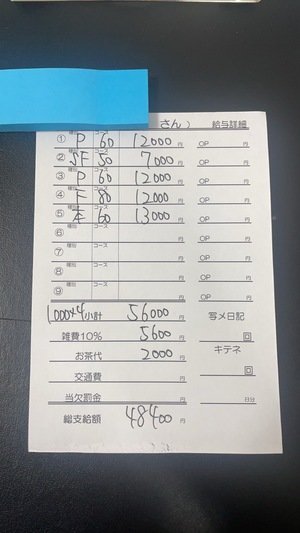 さん) 給与詳細
① 種別 P コース 60 12000円 OP 円
② 種別 SF コース 50 7000円 OP 円
③ 種別 P コース 60 12000円 OP 円
④ 種別 F コース 80 12000円 OP 円
⑤ 種別 本 コース 60 13000円 OP 円
⑥ 種別 コース 円 OP 円
⑦ 種別 コース 円 OP 円
⑧ 種別 コース 円 OP 円
⑨ 種別 コース 円 OP 円
1000×4 小計 56000円 写メ日記
雑費10% 5600円 回
お茶代 2000円 キテネ
交通費 円 回
当欠罰金 円 日分
総支給額 48400円